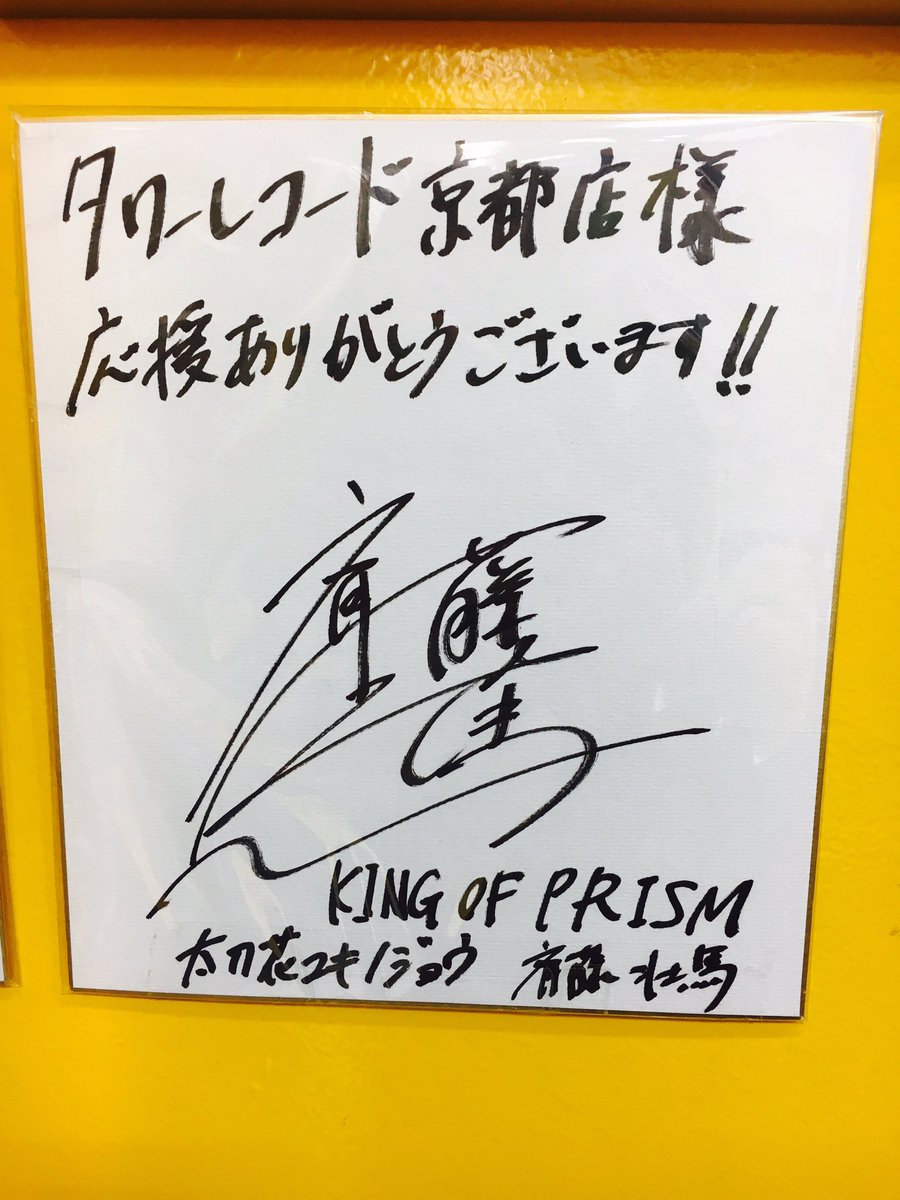 タワーレコード京都店様
応援ありがとうございます!!
斉藤壮馬
KING OF PRISM
太刀花ユキノジョウ 斉藤壮馬